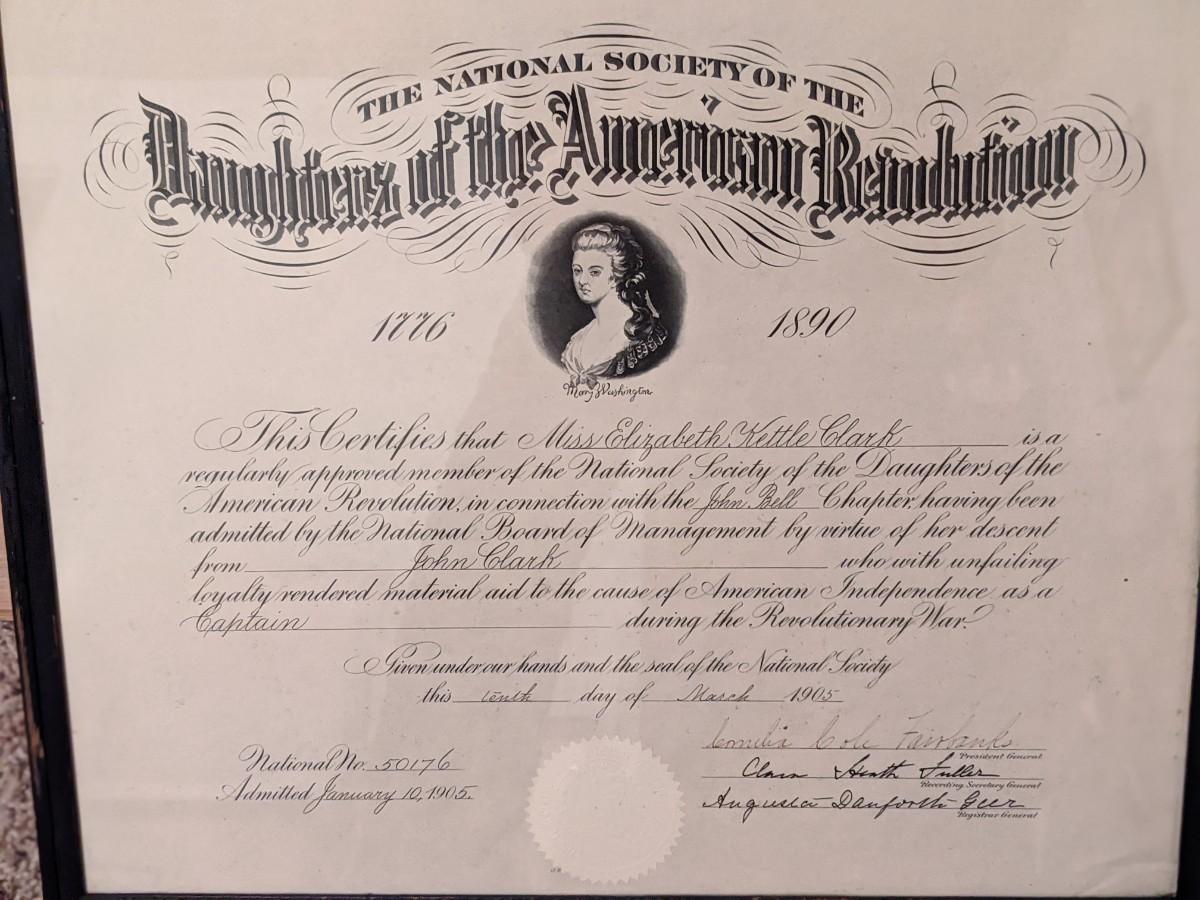 THE NATIONAL SOCIETY OF THE
Daughters of the American Revolution
1776
1890
Mary Washington
This Certifies that Miss Elizabeth Kettle Clark is a
regularly approved member of the National Society of the Daughters of the
American Revolution, in connection with the John Bell Chapter, having been
admitted by the National Board of Management by virtue of her descent
from John Clark who with unfailing
loyalty rendered material aid to the cause of American Independence as a
Captain during the Revolutionary War.
Given under our hands and the seal of the National Society
this tenth day of March 1905
Cornelia Cole Fairbanks
President General
National No. 50176
Clara Heath Fuller
Recording Secretary General
Admitted January 10, 1905.
Augusta Danforth Geer
Registrar General